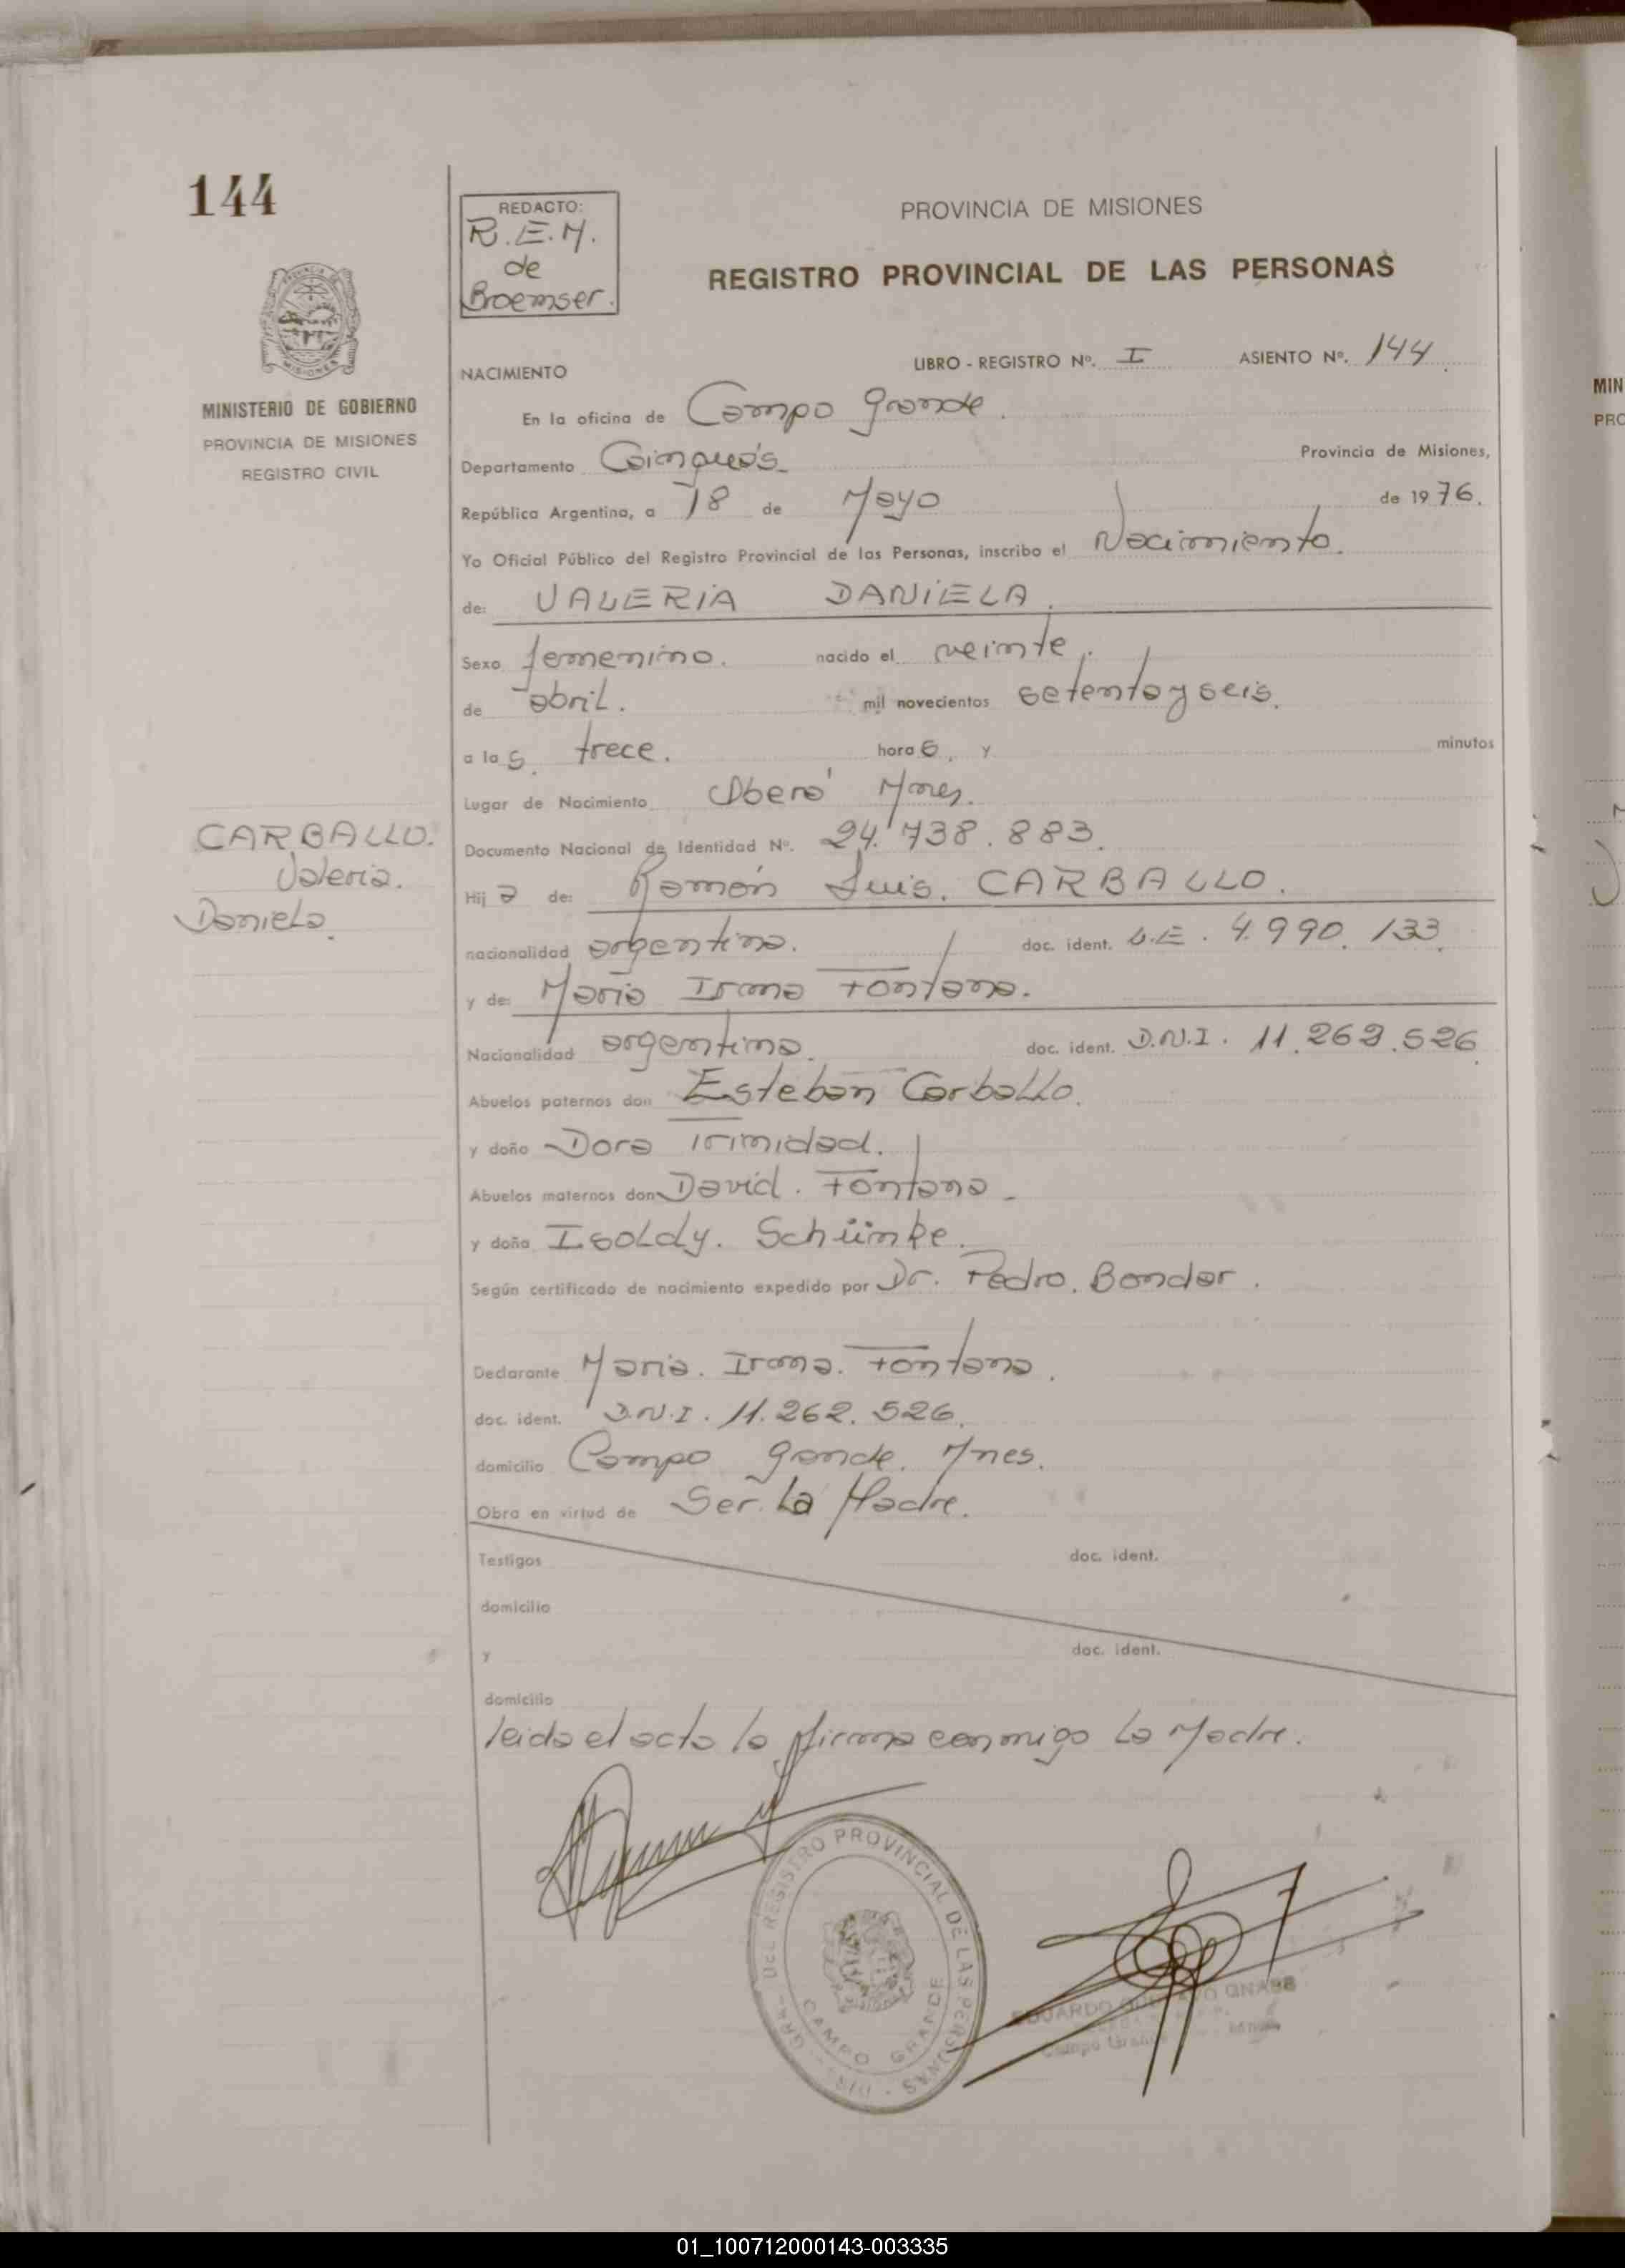 144
REDACTO:
R.E.M.
de
Broemser.
PROVINCIA DE MISIONES
REGISTRO PROVINCIAL DE LAS PERSONAS
MINISTERIO DE GOBIERNO
PROVINCIA DE MISIONES
REGISTRO CIVIL
LIBRO - REGISTRO Nº. I ASIENTO Nº. 144
NACIMIENTO
En la oficina de Campo Grande.
Departamento Cainguás Provincia de Misiones,
República Argentina, a 18 de Mayo de 1976.
Yo Oficial Público del Registro Provincial de las Personas, inscribo el Nacimiento.
de: VALERIA DANIELA.
Sexo femenino. nacido el veinte.
de abril. mil novecientos setenta y seis.
a las trece. horas, y minutos
Lugar de Nacimiento Oberá Mnes.
CARBALLO.
Valeria.
Daniela.
Documento Nacional de Identidad Nº. 24.738.883.
Hija de: Ramón Luis. CARBALLO.
nacionalidad argentina. doc. ident. L.E. 4.990.133.
y de: Maria Irma Fontana.
Nacionalidad argentina. doc. ident. D.N.I. 11.262.526
Abuelos paternos don Esteban Carballo.
y doña Dora Trinidad.
Abuelos maternos don David. Fontana.
y doña Isoldy. Schünke.
Según certificado de nacimiento expedido por Dr. Pedro. Bondar.
Declarante Maria. Irma. Fontana.
doc. ident. D.N.I. 11.262.526.
domicilio Campo Grande. Mnes.
Obra en virtud de Ser La Madre.
Testigos doc. ident.
domicilio
y doc. ident.
domicilio
leida el acta la firma conmigo La Madre.
DIR. GRAL. DEL REGISTRO PROVINCIAL DE LAS PERSONAS
CAMPO GRANDE
EDUARDO GNASS
Campo Grande
MIN
PRO
01_100712000143-003335